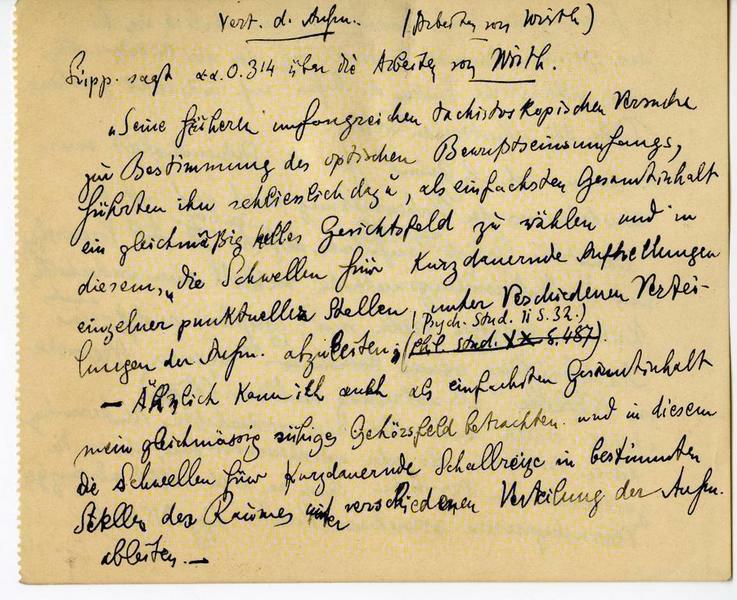 Vert. d. Aufm. (Arbeiten von Wirth)
sagt a.a.O. 314 über die Arbeiten von Wirth.
„Seine früheren umfangreichen tachistoskopischen Versuche
zur Bestimmung des optischen Bewußtseinsumfangs,
führten ihn schliesslich dazu, als einfachsten Gesamtinhalt
ein gleichmäßig helles Gesichtsfeld zu wählen und in
diesem, „die Schwellen für kurzdauernde Aufhellungen
einzelner punktueller Stellen unter verschiedenen Vertei-
(Psych. Stud. II S. 32.)
lungen der Aufm. abzuleiten; (Phil. Stud. XX S. 487).
— Ähnlich kann ich auch als einfachsten Gesamtinhalt
mein gleichmässig ruhiges Gehörsfeld betrachten und in diesem
die Schwellen für kurzdauernde Schallreize in bestimmten
Stellen des Raumes unter verschiedenen Verteilung der Aufm.
ableiten. —